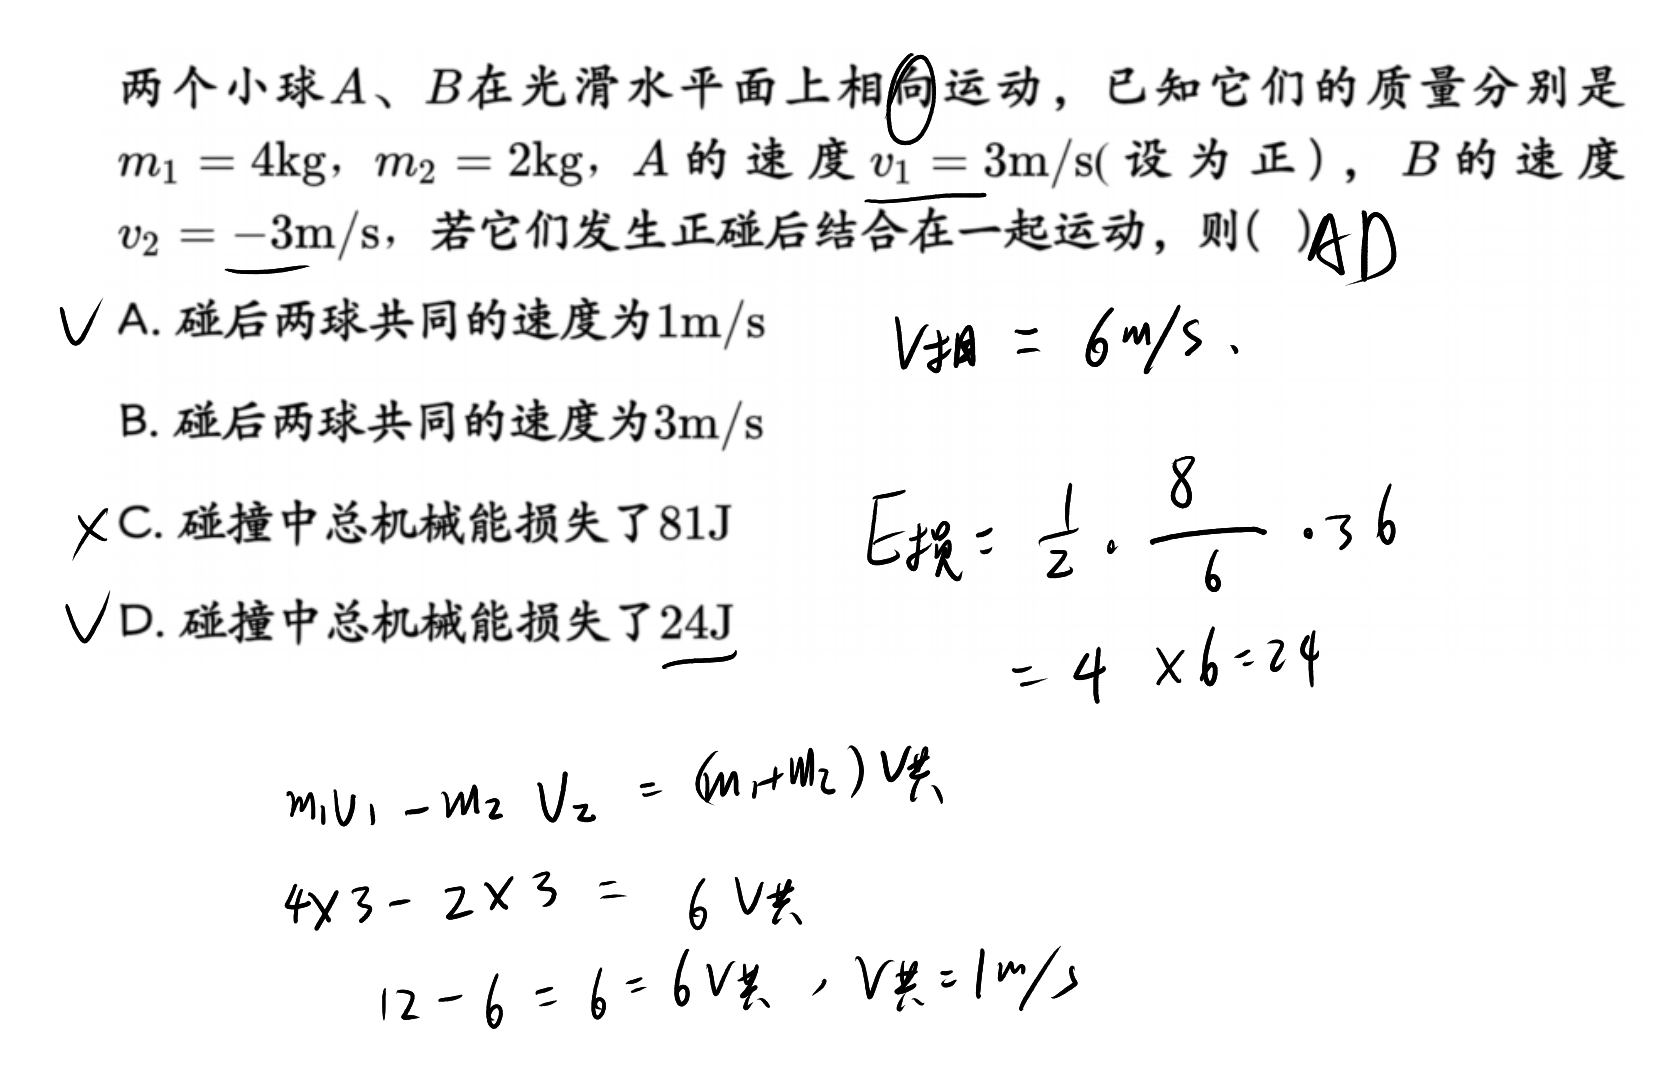 两个小球A、B在光滑水平面上相向运动，已知它们的质量分别是
m₁ = 4kg，m₂ = 2kg，A的速度v₁ = 3m/s(设为正)，B的速度
v₂ = −3m/s，若它们发生正碰后结合在一起运动，则( ) AD
√ A. 碰后两球共同的速度为1m/s
V相 = 6m/s、
B. 碰后两球共同的速度为3m/s
× C. 碰撞中总机械能损失了81J
E损 = 1/2 · 8/6 · 36
√ D. 碰撞中总机械能损失了24J
= 4 × 6 = 24
m₁V₁ − m₂ V₂ = (m₁+m₂) V共
4×3 − 2×3 = 6 V共
12 − 6 = 6 = 6V共，V共 = 1m/s